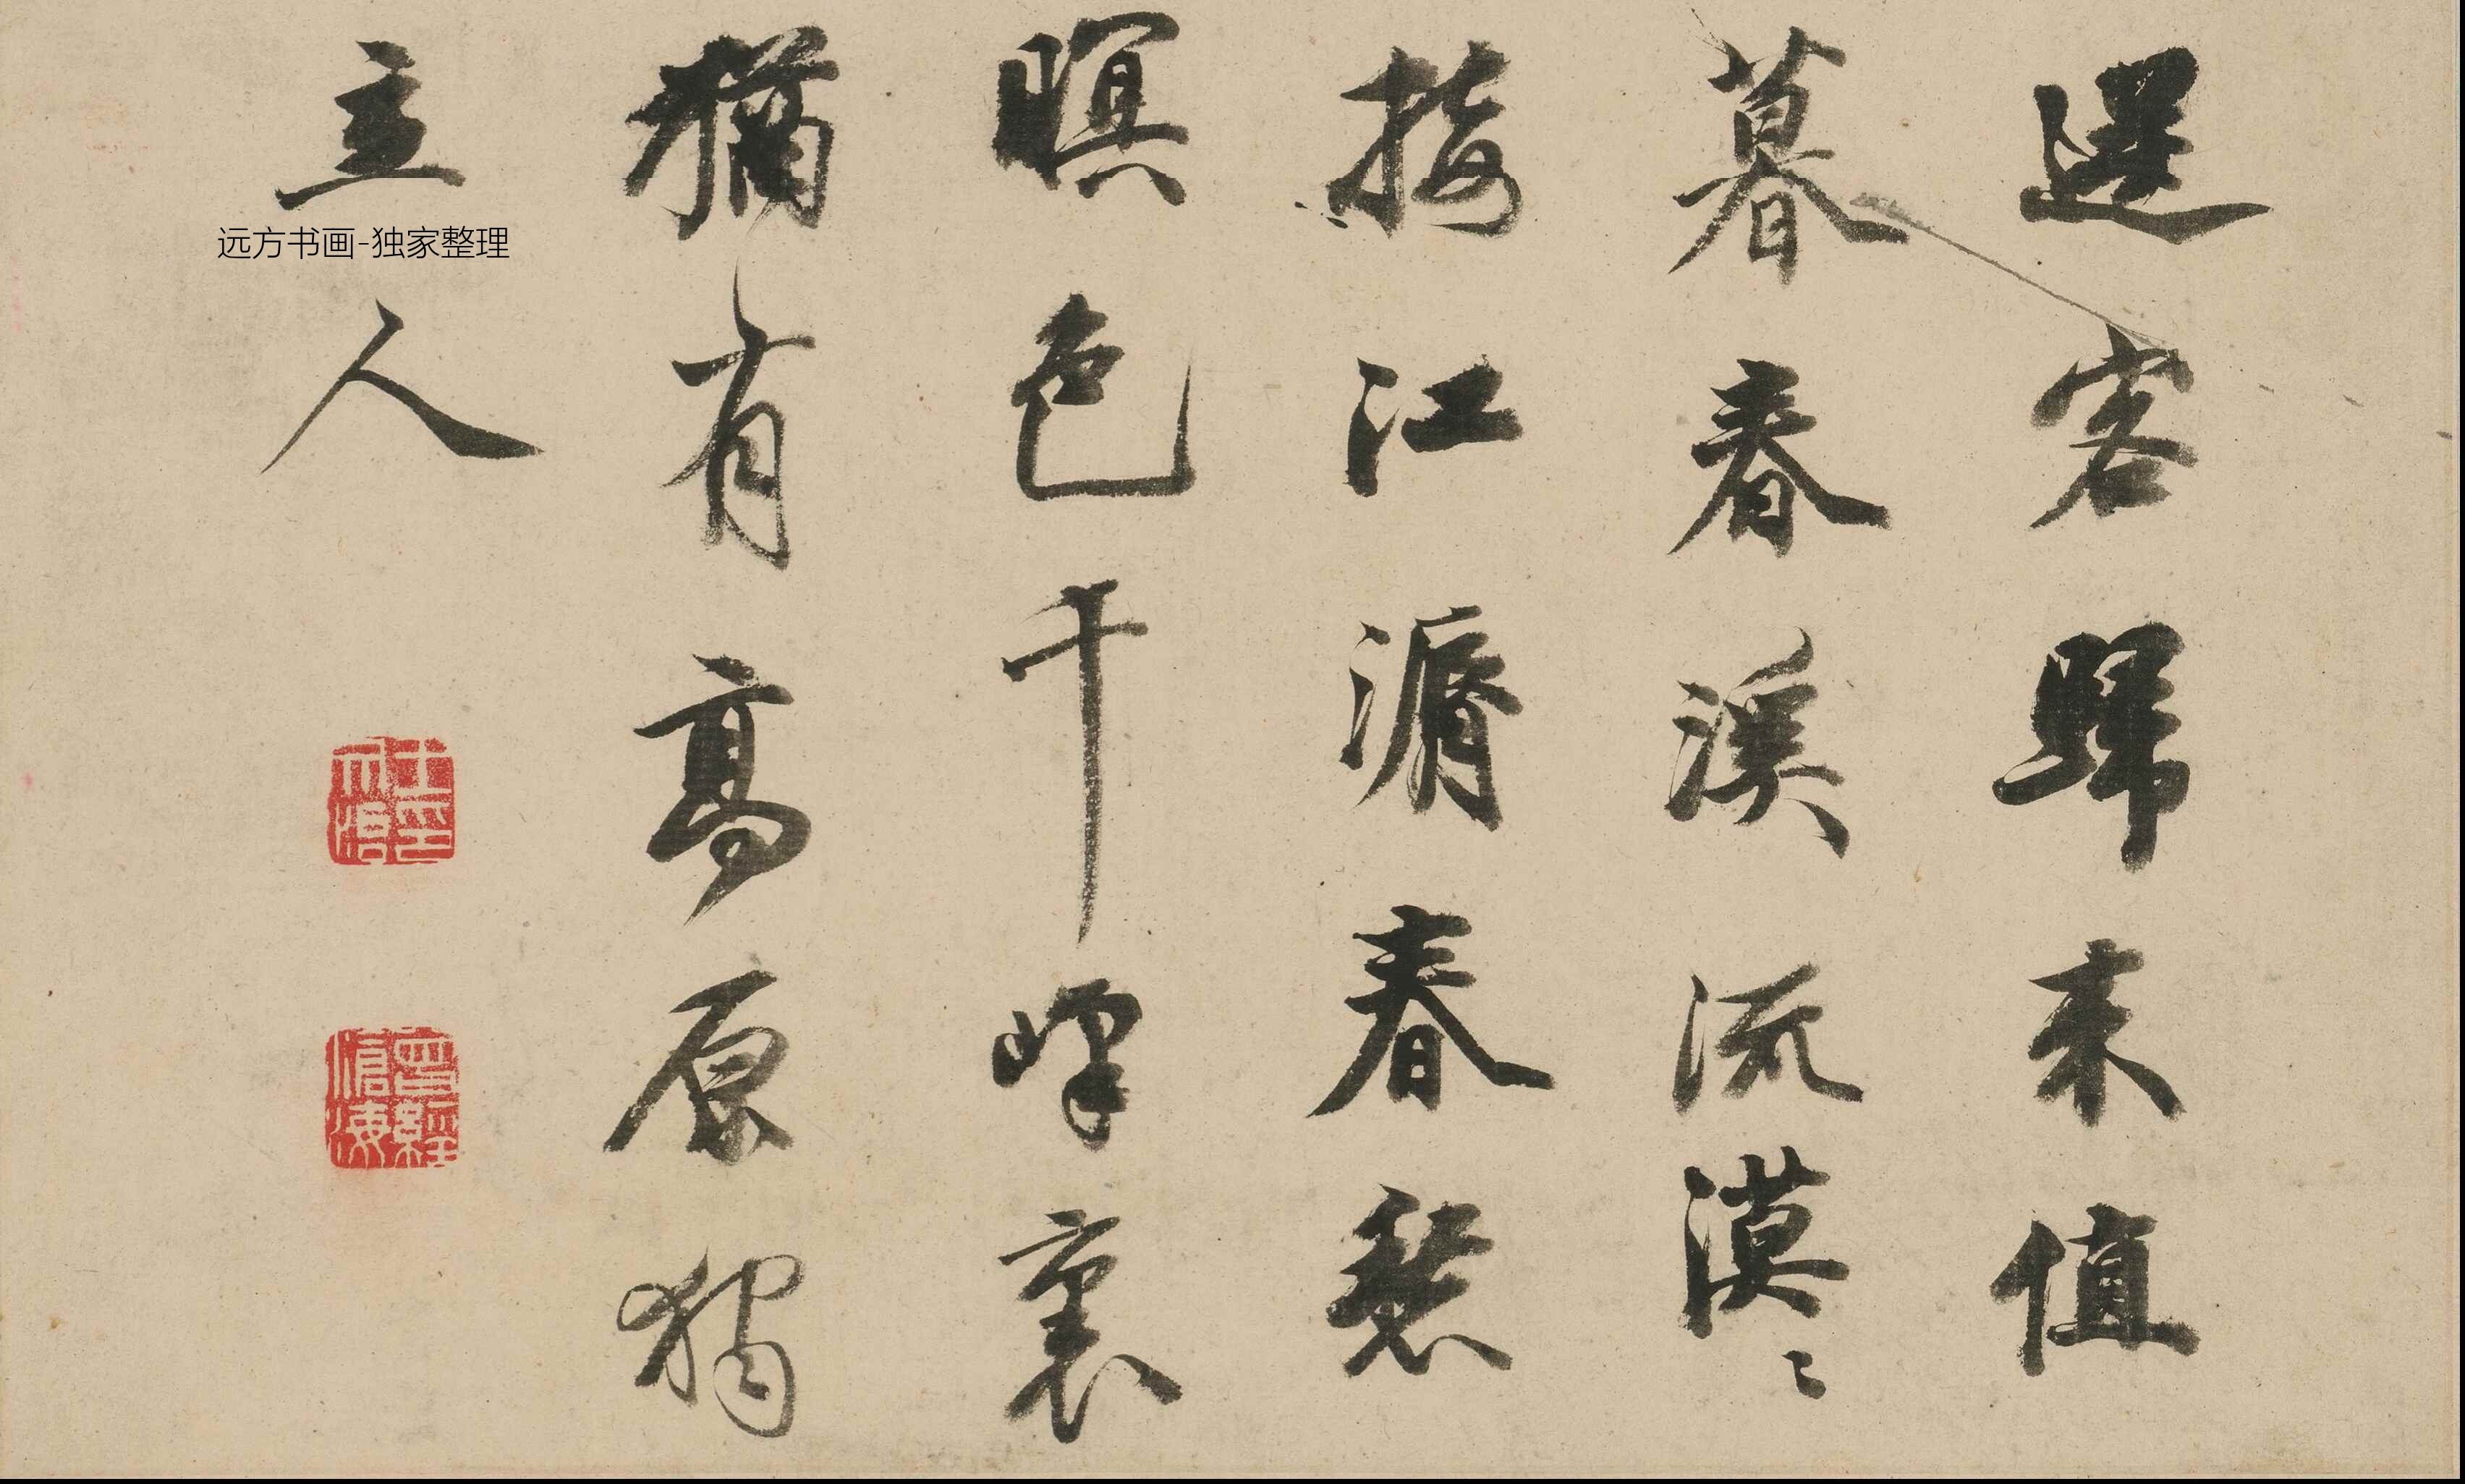 遷客歸來值
暮春溪流漠〻
接江漘春愁
暝色千峰裏
猶有高原獨
立人
远方书画-独家整理